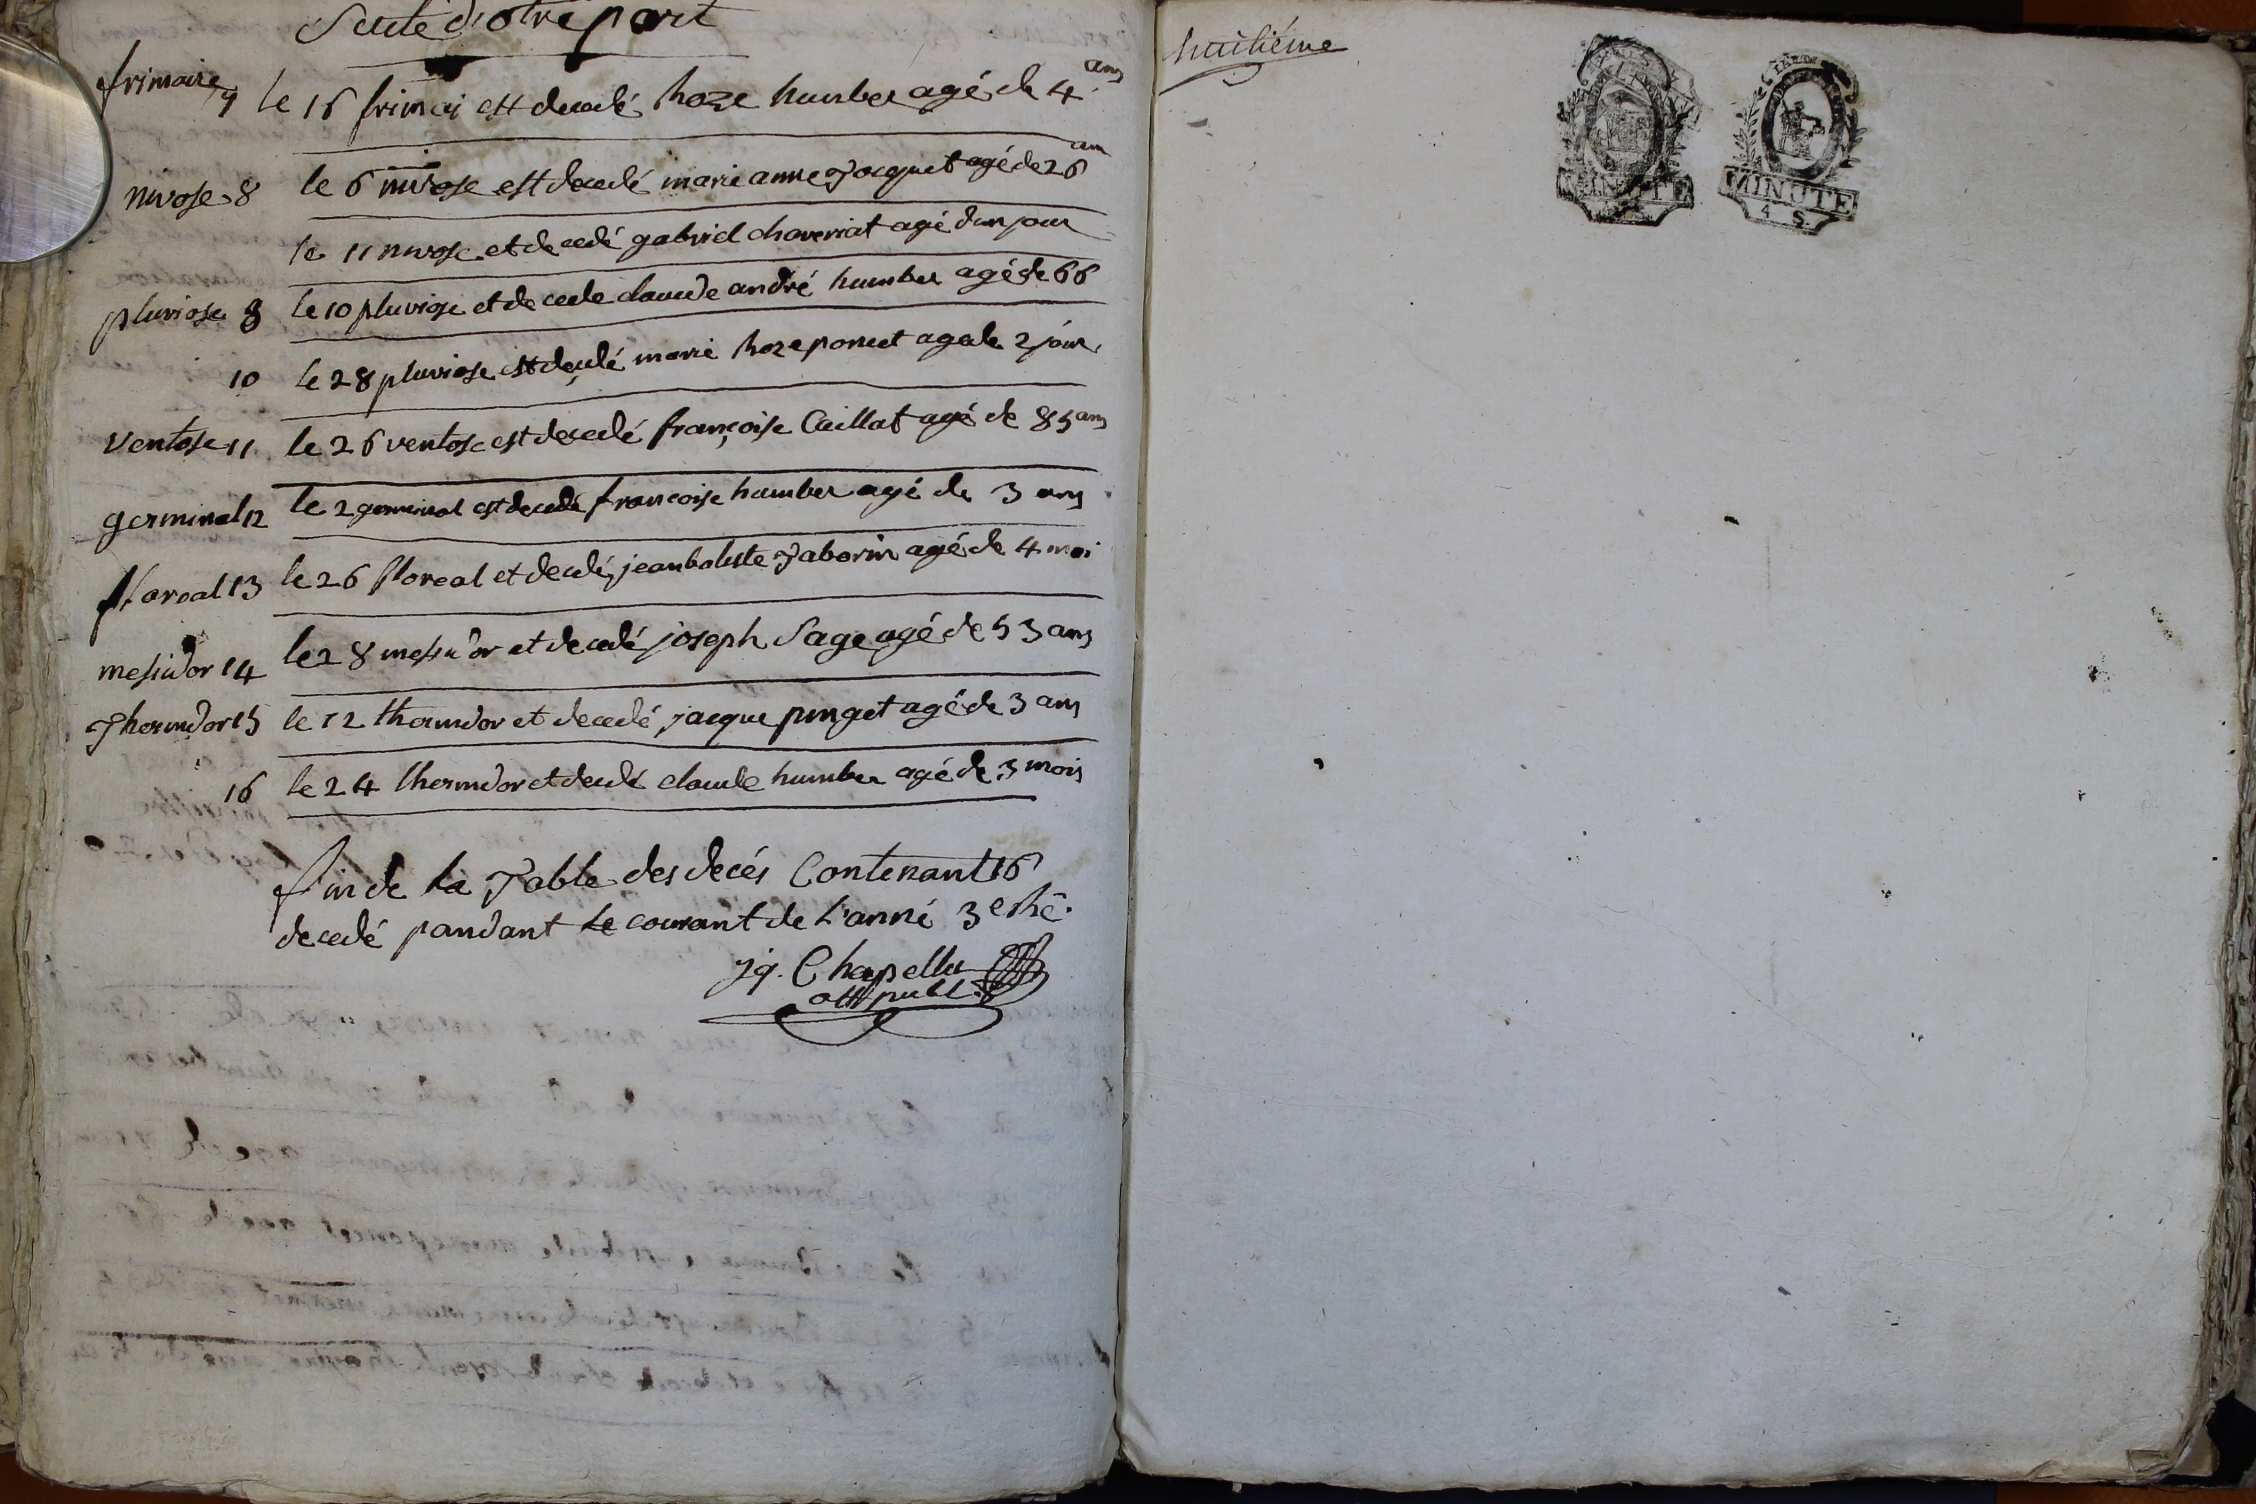 Suite d'otre part
frimaire 7 le 16 frimai est decedé hoze humber agé de 4 ans
nivose 8 le 6 nivose est decedé marie anne Jacquet agé de 26 ans
le 11 nivose et decedé gabriel chaveriat agé d'un jour
pluviose 9 le 10 pluviose et decede claude andré humber agé de 66
10 le 28 pluviose est decedé marie hoze poncet agede 2 jour
Ventose 11 le 26 ventose est decedé françoise Caillat agé de 85 ans
germinal 12 le 2 germinal est decedé francoise humber agé de 3 ans
floreal 13 le 26 floreal et decedé jeanbatiste Taborin agé de 4 moi
mesidor 14 le 28 mesidor et decedé joseph Sage agé de 53 ans
Thermdor 15 le 12 thermdor et decedé jacque pinget agé de 3 ans
16 le 24 thermdor et decedé claude humber agé de 3 mois
fin de la Table des decés Contenant 16
decedé pandant le courant de l'anné 3e
Jq. Chapellu
off publ.
huitiéme
MINUTE
MINUTE
4 S.